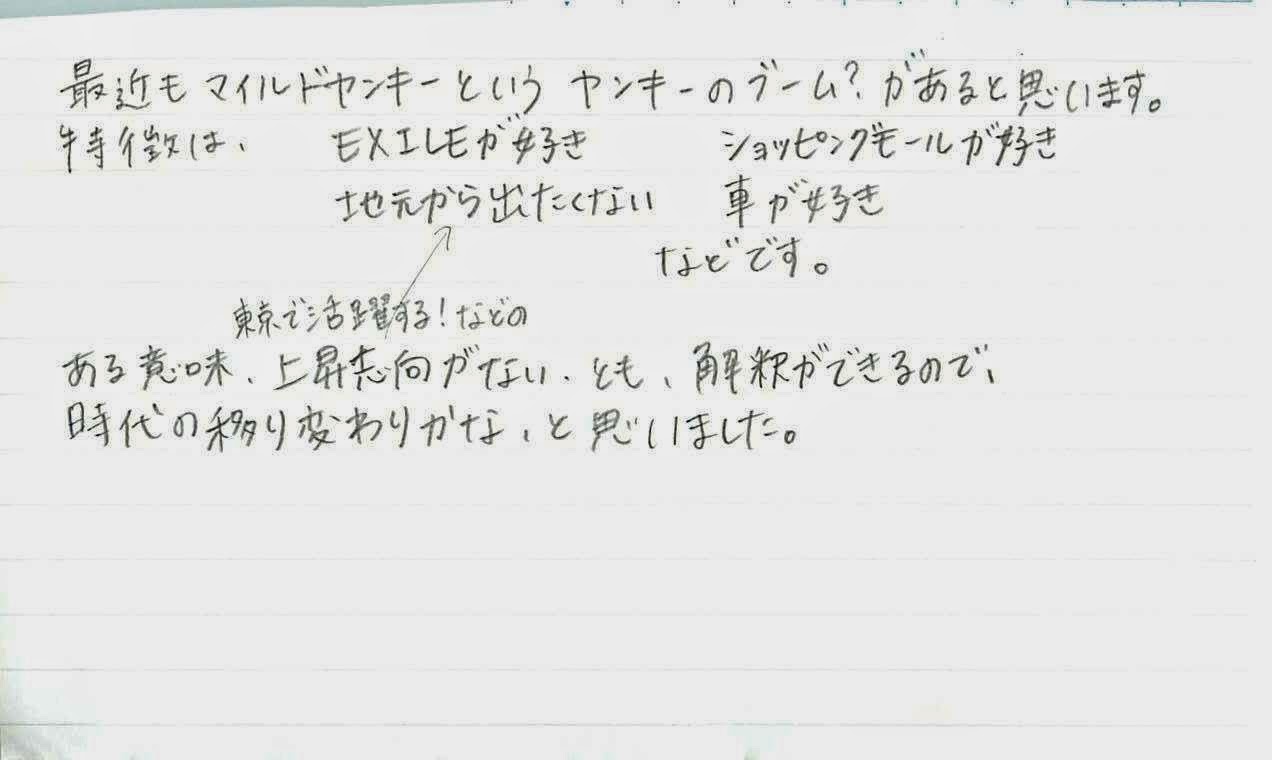 最近もマイルドヤンキーというヤンキーのブーム?があると思います。
特徴は、 EXILEが好き ショッピングモールが好き
地元から出たくない 車が好き
などです。
東京で活躍する!などの
ある意味、上昇志向がない、とも、解釈ができるので、
時代の移り変わりかな、と思いました。